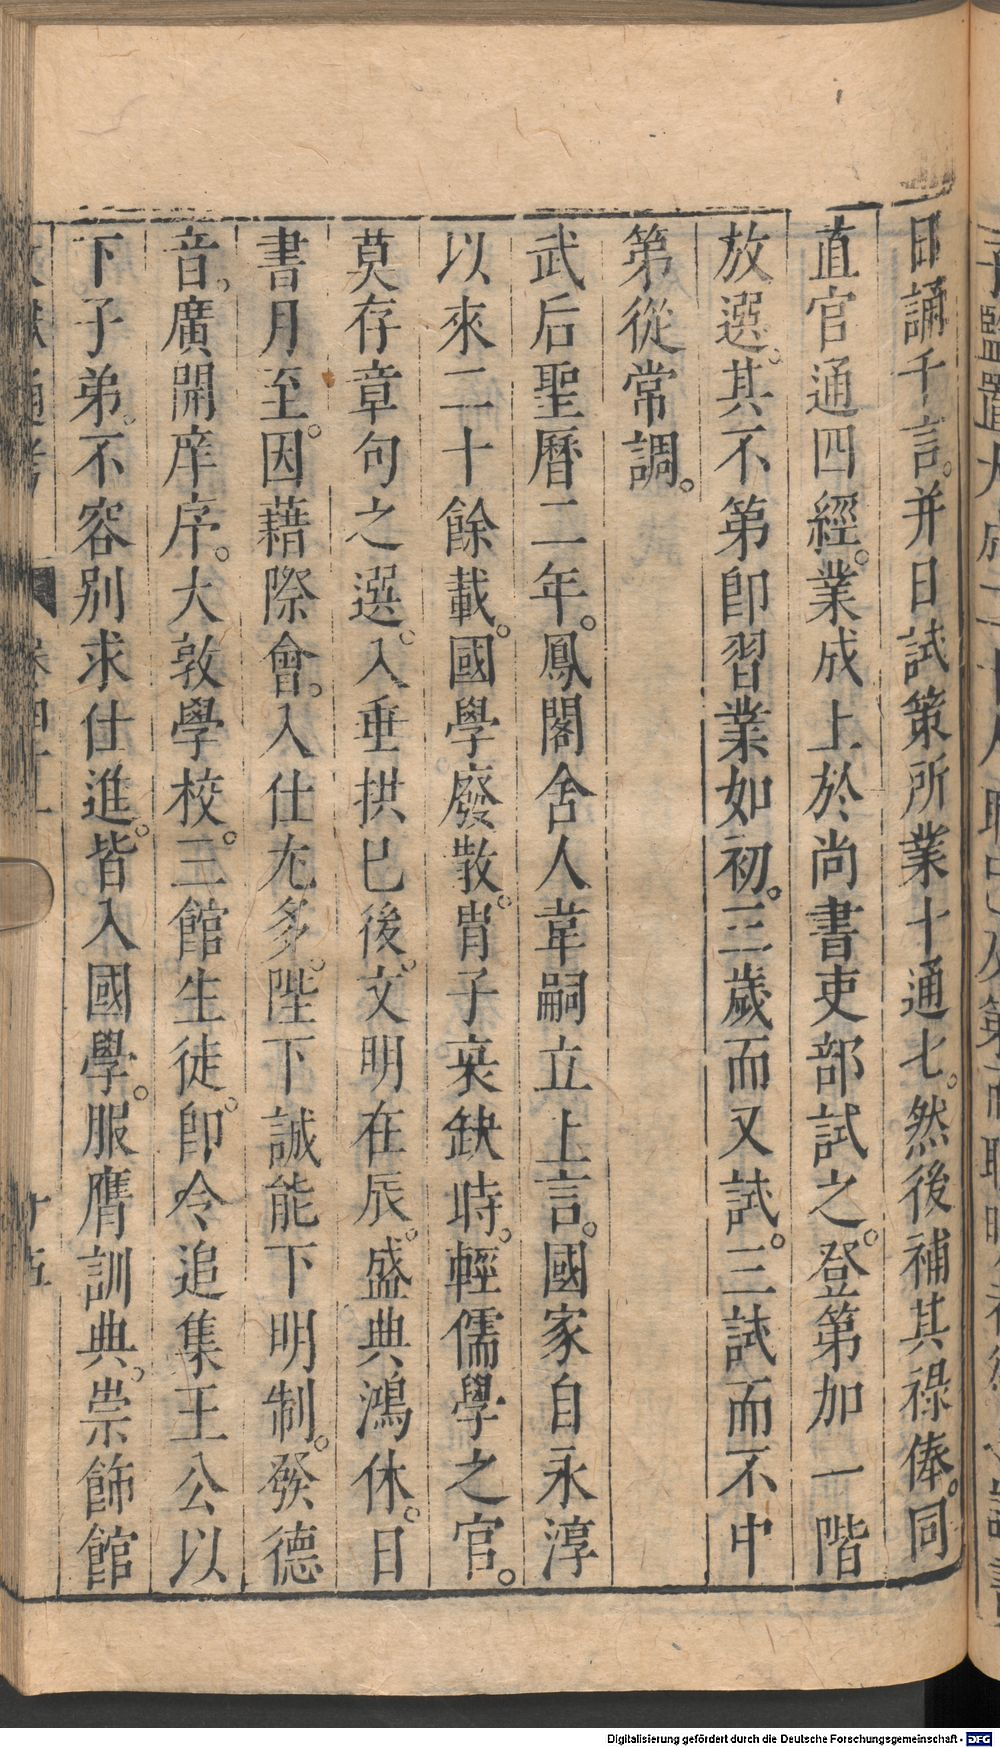 日誦千言。并日試策所業十通七。然後補其祿俸。同
直官通四經。業成上於尚書吏部試之。登第加一階
放選。其不第卽習業如初。三歲而又試。三試而不中
第從常調。
武后聖曆二年。鳳閣舍人韋嗣立上言。國家自永淳
以來二十餘載。國學廢散。胄子棄缺時。輕儒學之官。
莫存章句之選。入垂拱已後。文明在辰。盛典鴻休。日
書月至。因藉際會。入仕尤多。陛下誠能下明制。發德
音。廣開庠序。大敦學校。三館生徒。卽令追集王公以
下子弟。不容別求仕進。皆入國學。服膺訓典。崇飾館
通考 卷四十一 十五
Digitalisierung gefördert durch die Deutsche Forschungsgemeinschaft - DFG